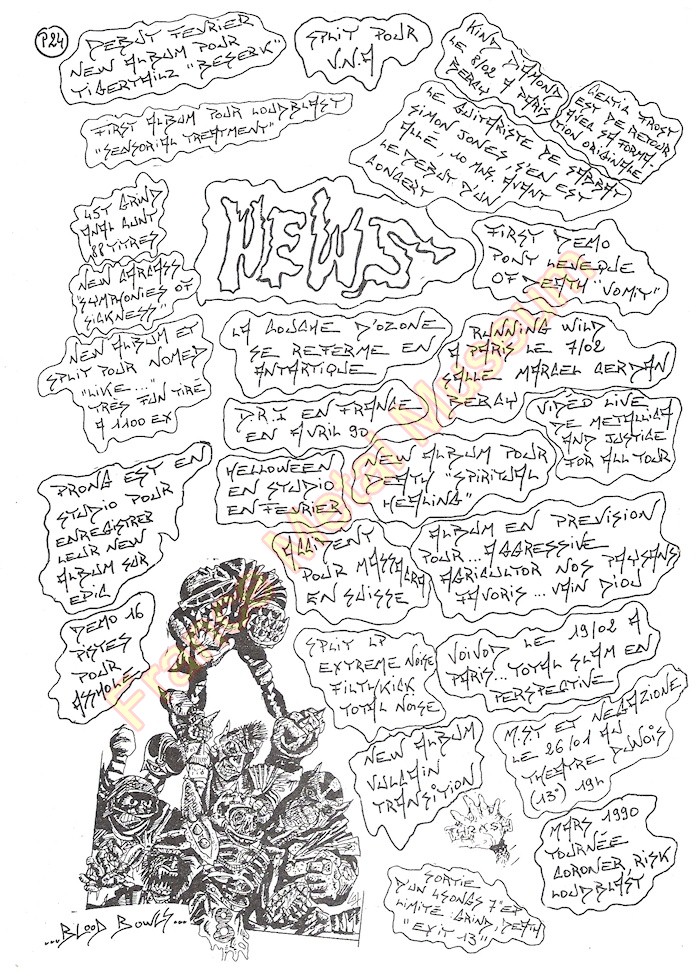 P24
DEBUT FEVRIER
NEW ALBUM POUR
TIGERTAILZ "BESERK"
SPLIT POUR
V.N.A
KIND DIAMOND
LE 8/02 A PARIS
BERCY
CELTIC FROST
EST DE RETOUR
AVEC SA FORMA-
TION ORIGINALE
FIRST ALBUM POUR LOUDBLAST
"SENSORIAL TREATMENT"
LE GUITARISTE DE SABBAT
SIMON JONES S'EN EST
ALLÉ, 10 MNS. AVANT
LE DEBUT D'UN
CONCERT
45T GRIND
ANAL CUNT
88 TITRES
NEWS
FIRST DEMO
PONT LEVEQUE
OF DEATH "VOMIT"
NEW CARCASS
"SYMPHONIES OF
SICKNESS"
LA COUCHE D'OZONE
SE REFERME EN
ANTARTIQUE
RUNNING WILD
A PARIS LE 7/02
SALLE MARCEL CERDAN
BERCY
NEW ALBUM ET
SPLIT POUR NOMED
"LIKE..."
TRÈS FUN TIRÉ
A 1100 EX
D.R.I EN FRANCE
EN AVRIL 90
VIDÉO LIVE
DE METALLICA
AND JUSTICE
FOR ALL TOUR
PRONG EST EN
STUDIO POUR
ENREGISTRER
LEUR NEW
ALBUM SUR
EPIC
HELLOWEEN
EN STUDIO
EN FEVRIER
NEW ALBUM POUR
DEATH "SPIRITUAL
HEALING"
ACCIDENT
POUR MASSACRA
EN SUISSE
ALBUM EN PREVISION
POUR... AGGRESSIVE
AGRICULTOR NOS PAYSANS
FAVORIS... VAIN DIOU
DEMO 16
PISTES
POUR
ASSHOLE
SPLIT LP
EXTREME NOISE
FILTHKICK
TOTAL NOISE
VOIVOD LE 19/02 A
PARIS... TOTAL SLAM EN
PERSPECTIVE
NEW ALBUM
VULCAIN
TRANSITION
M.ST ET NEGAZIONE
LE 26/01 AU
THEATRE DUNOIS
(13°) 19h
THRASH
MARS 1990
TOURNÉE
CORONER RISK
LOUDBLAST
SORTIE
D'UN 4SONGS 7"EP
LIMITE GRIND, DEATH
"EXIT 13"
...BLOOD BOWLS...
France Metal Museum